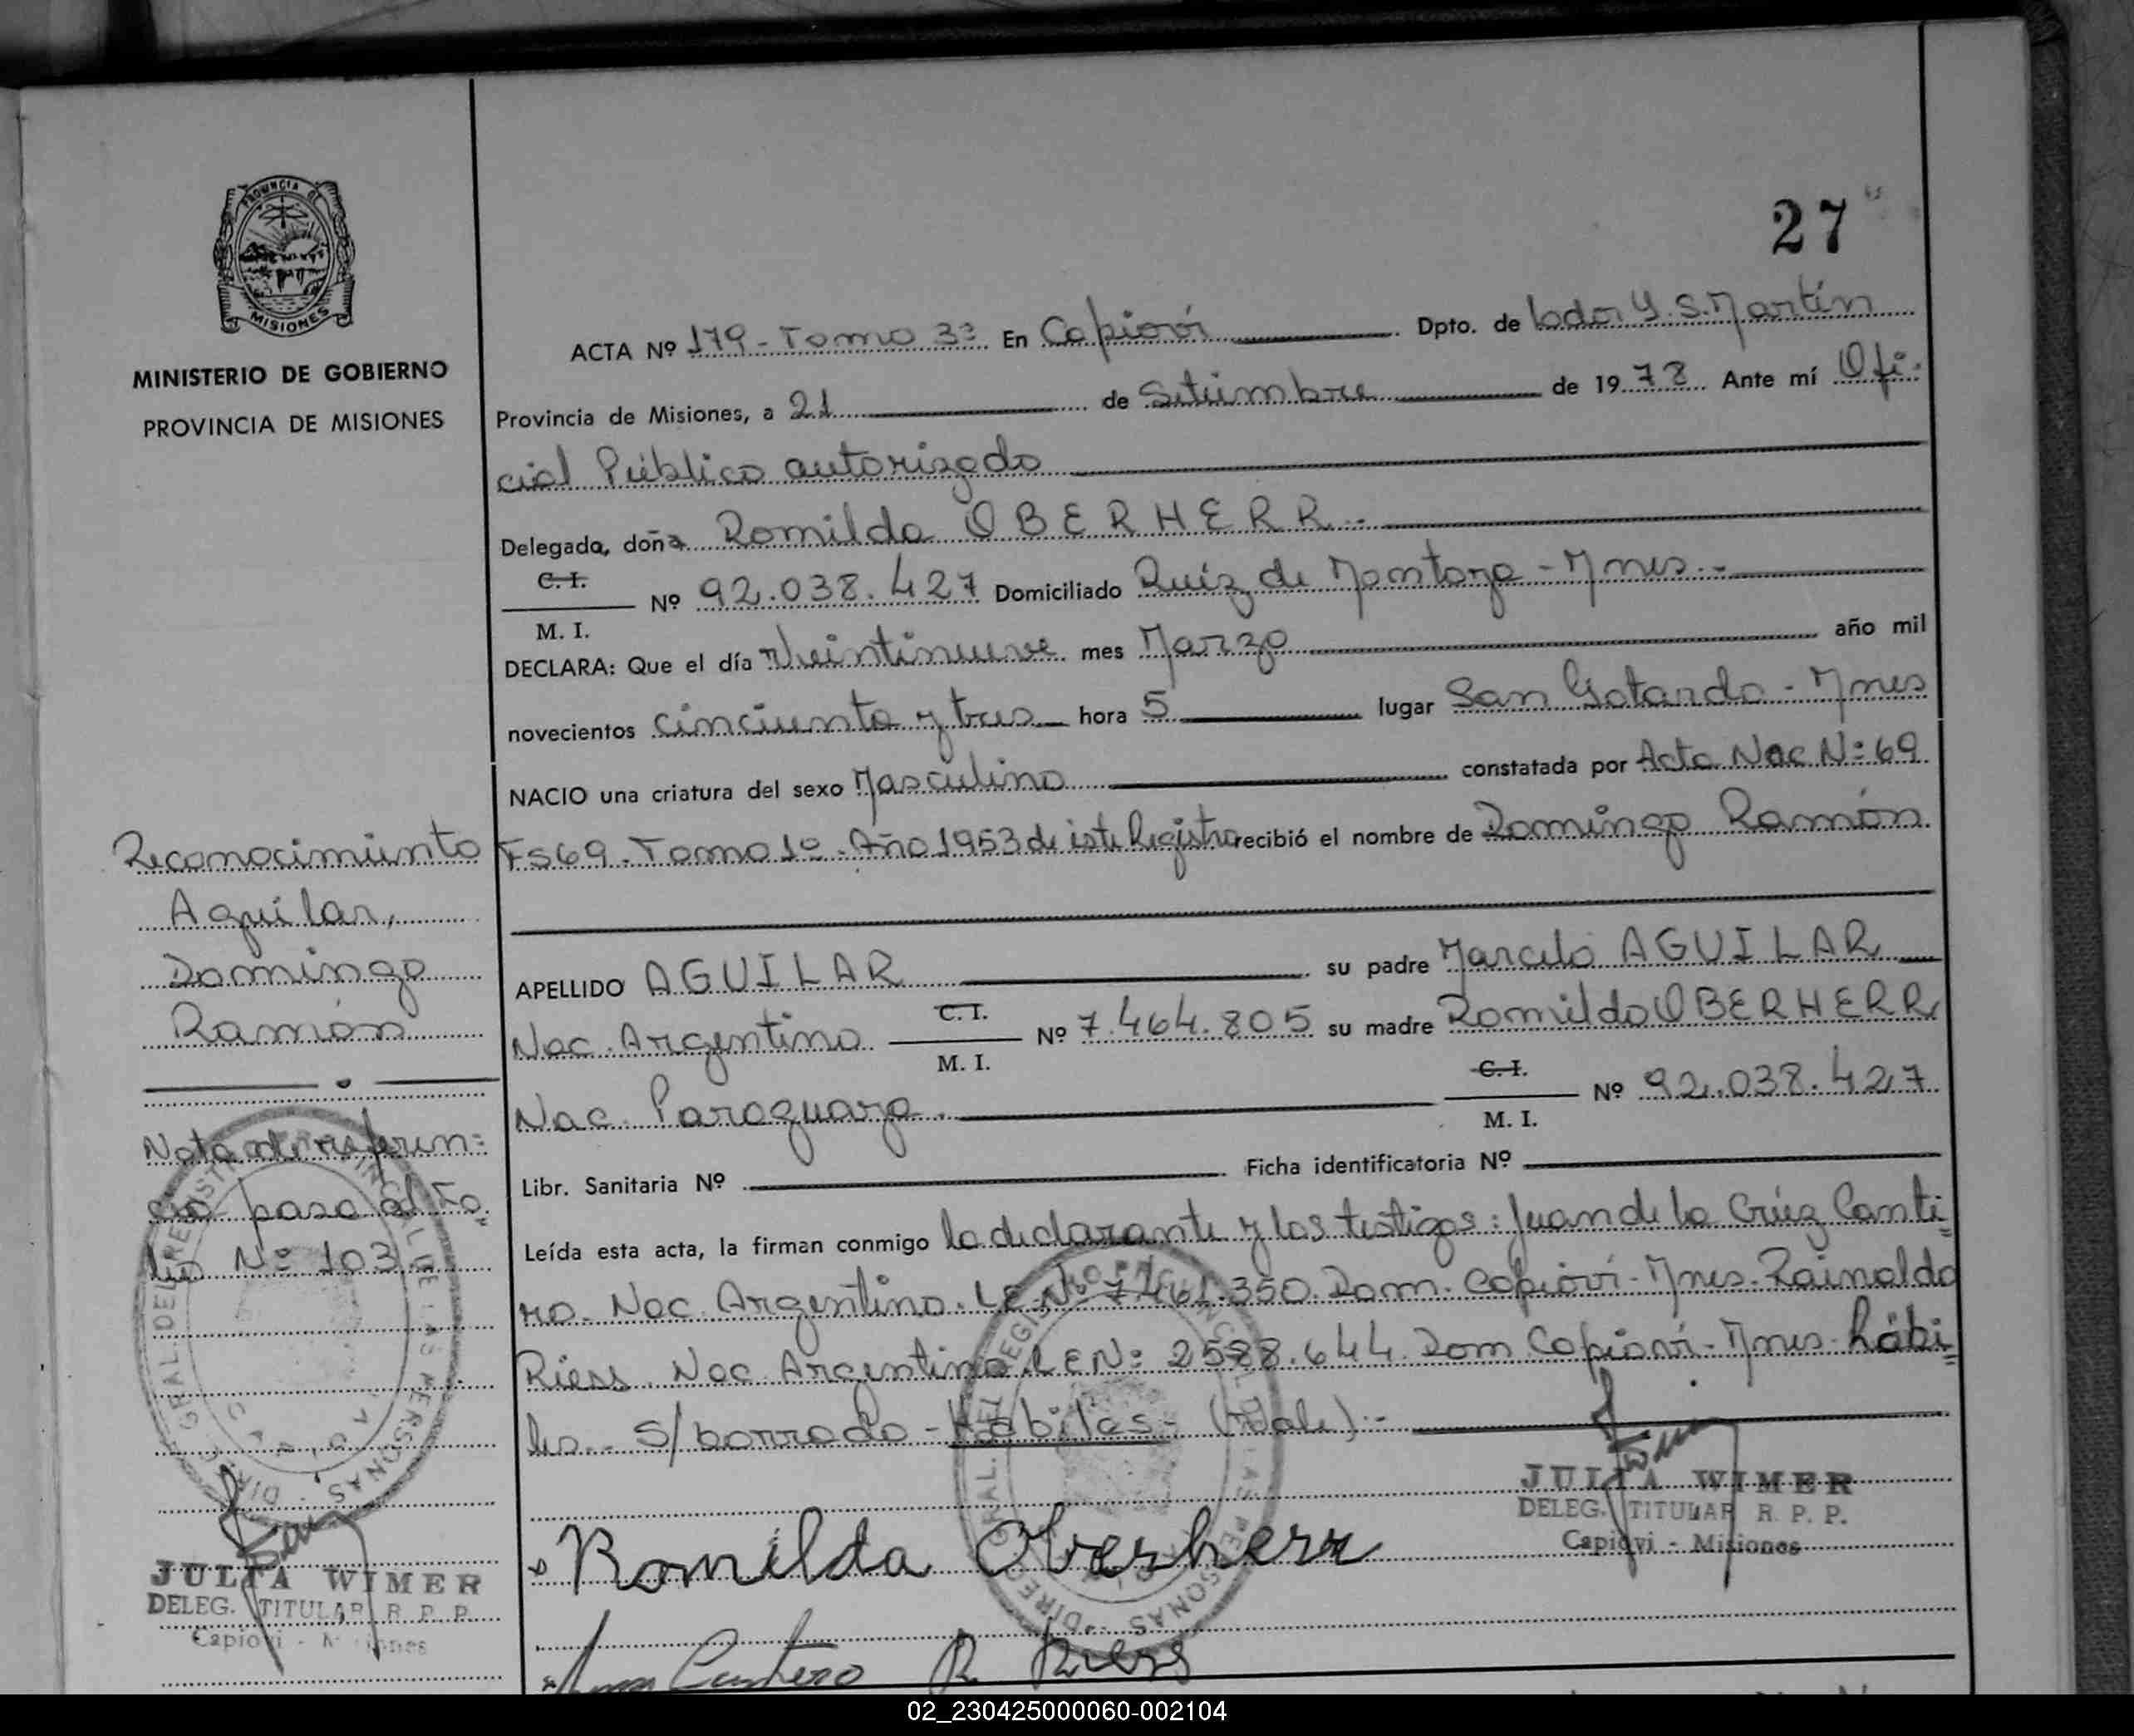 27
PROVINCIA DE
MISIONES
MINISTERIO DE GOBIERNO
PROVINCIA DE MISIONES
ACTA Nº 179 - Tomo 3º En Capioví Dpto. de Lador G. S. Martín
Provincia de Misiones, a 21 de Setiembre de 1978 Ante mí Ofi-
cial Público autorizado
Delegada, doña Romilda OBERHERR.-
C. I.
M. I. Nº 92.038.427 Domiciliado Ruíz de Montoya - Mnes.-
DECLARA: Que el día Veintinueve mes Marzo año mil
novecientos cincuenta y tres hora 5 lugar San Gotardo - Mnes
NACIO una criatura del sexo Masculino constatada por Acta Nac Nº 69
Fs 69. Tomo 1º. Año 1953 de este Registro recibió el nombre de Domingo Ramón
APELLIDO AGUILAR su padre Marcelo AGUILAR
Nac. Argentino C. I. M. I. Nº 7.464.805 su madre Romilda OBERHERR
Nac. Paraguaya. C. I. M. I. Nº 92.038.427
Libr. Sanitaria Nº Ficha identificatoria Nº
Leída esta acta, la firman conmigo la declarante y los testigos: Juan de la Crúz Canti-
ro. Nac. Argentino. LE. Nº 7.461.350. Dom. Capioví - Mnes. Rainoldo
Riess. Nac. Argentino. LE Nº 2588.644. Dom Capioví - Mnes. hábi-
les.. S/ borrado - Hábiles - (vale).-
Romilda Oberherr
JULIA WIMER
DELEG. TITULAR R. P. P.
Capioví - Misiones
R. Riess
Reconocimiento
Aguilar,
Domingo
Ramón
Nota de referen-
cia pasa al Fo-
lio Nº 103
JULIA WIMER
DELEG. TITULAR R. P. P.
Capioví - Misiones
02_230425000060-002104